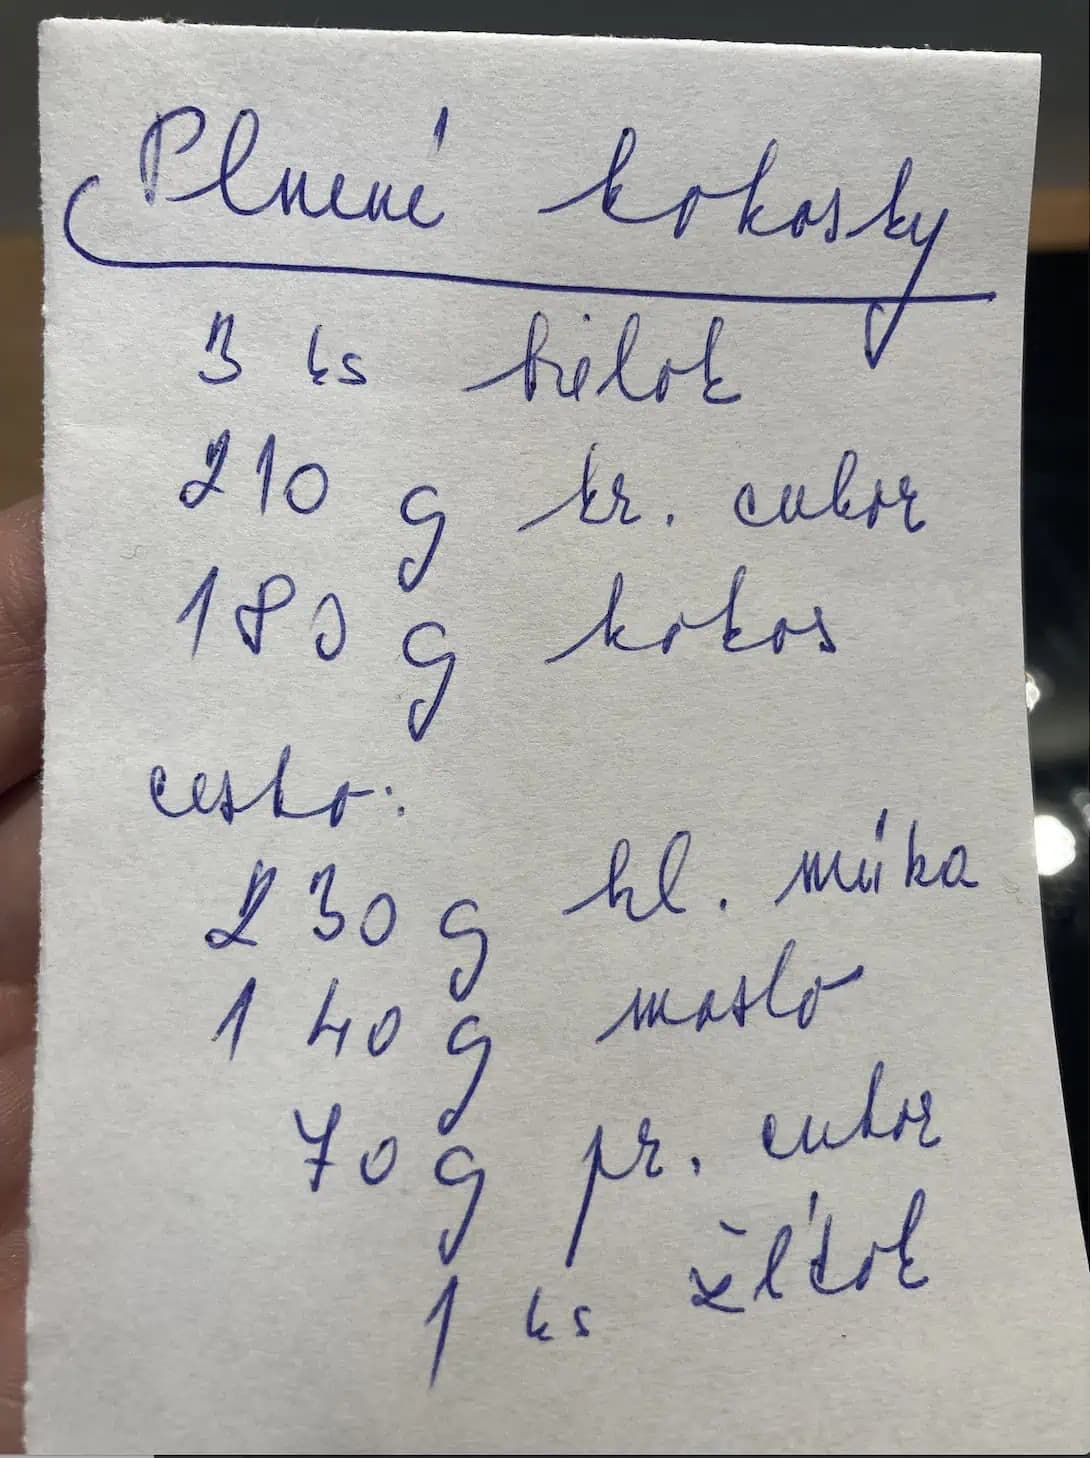 Plnené kokosky
3 ks bielok
210 g kr. cukor
180 g kokos
cesto:
230 g hl. múka
140 g maslo
70 g pr. cukor
1 ks žĺtok